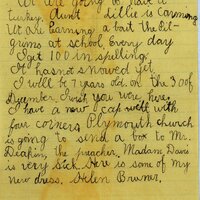 We are going to have a
turkey. Aunt Lillie is coming
We are learning a bout the Pil-
grims at school Every day
I got 100 in spelling.
It has not snowed yet.
I will be 7 years old on the 3.0 of
December. I wish you were here
I have a new cap with
four corners Plymouth church
is going to send a box to Mr.
the preacher, Madame Davis
is very sick Here is some of my
new dress, Helen Bruner,